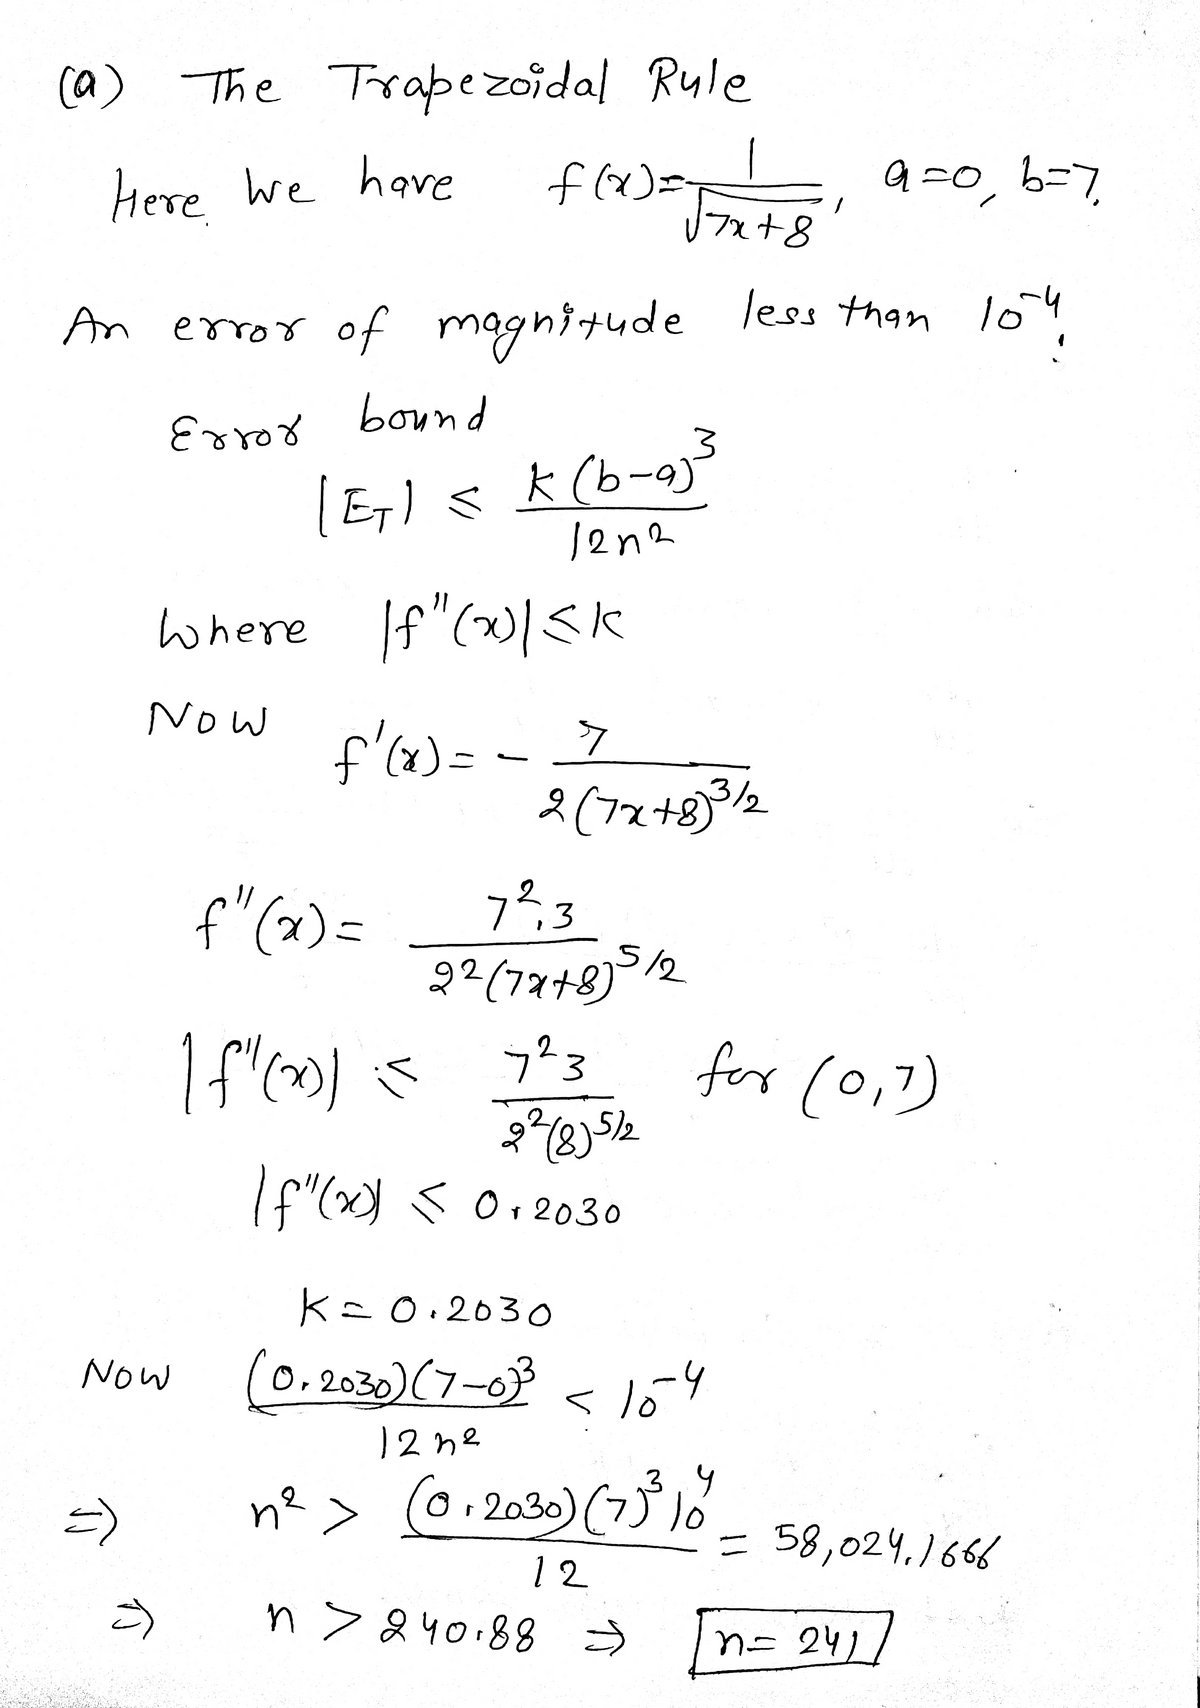 (a) The Trapezoidal Rule
Here we have f(x)=1/√7x+8, a=0, b=7.
An error of magnitude less than 10⁻⁴.
Error bound
|E_T| ≤ k(b-a)³/12n²
where |f"(x)| ≤ k
Now f'(x) = - 7/2(7x+8)^3/2
f"(x) = 7².3/2²(7x+8)^5/2
|f"(x)| ≤ 7²3/2²(8)^5/2 for (0,7)
|f"(x)| ≤ 0.2030
k = 0.2030
Now (0.2030)(7-0)³/12n² < 10⁻⁴
⇒ n² > (0.2030)(7)³10⁴/12 = 58,024.1666
⇒ n > 240.88 ⇒ n = 241